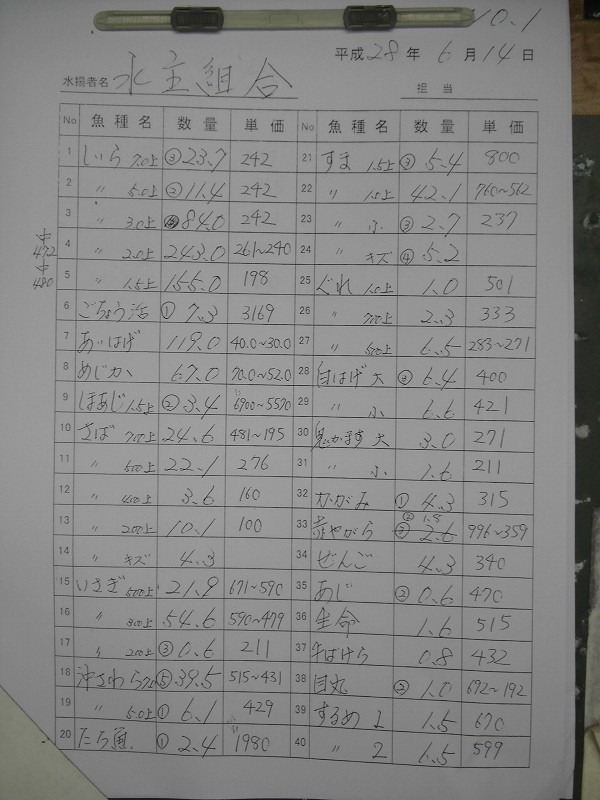 10.1
平成28年6月14日
水揚者名 水主組合 担当
No 魚種名 数量 単価 No 魚種名 数量 単価
1 しいら 7.0上 ③23.7 242
2 〃 5.0上 ②11.4 242
3 〃 3.0上 84.0 242
4 〃 2.0上 243.0 261~240
5 〃 1.5上 155.0 198
6 ごちょう活 ① 7.3 3169
7 あいはげ 119.0 40.0~30.0
8 めじか 67.0 70.0~52.0
9 ほあじ 1.5上 ② 3.4 6900~5570
10 さば 700上 24.6 481~195
11 〃 500上 22.1 276
12 〃 400上 3.6 160
13 〃 200上 10.1 100
14 〃 キズ 4.3
15 いさぎ 500上 21.9 671~590
16 〃 300上 54.6 590~479
17 〃 200上 ③ 0.6 211
18 沖さわら 7.0上 ⑤ 39.5 515~431
19 〃 5.0上 ① 6.1 429
20 たち魚 ① 2.4 1980
21 すま 1.5上 ③ 5.4 800
22 〃 1.0上 42.1 760~562
23 〃 小 ③ 2.7 237
24 〃 キズ ④ 5.2
25 ぐれ 1.0上 1.0 501
26 〃 700上 2.3 333
27 〃 500上 6.5 283~271
28 白はげ 大 ③ 6.4 400
29 〃 小 6.6 421
30 鬼かます 大 3.0 271
31 〃 小 1.6 211
32 かがみ ① 4.3 315
33 赤やがら ② 1.8 2.6 996~359
34 ぜんご 4.3 340
35 あじ ② 0.6 470
36 生命 1.6 515
37 牛はけら 0.8 432
38 目丸 ② 1.0 692~192
39 するめ 1 1.5 670
40 〃 2 6.5 599
中 472
中 480